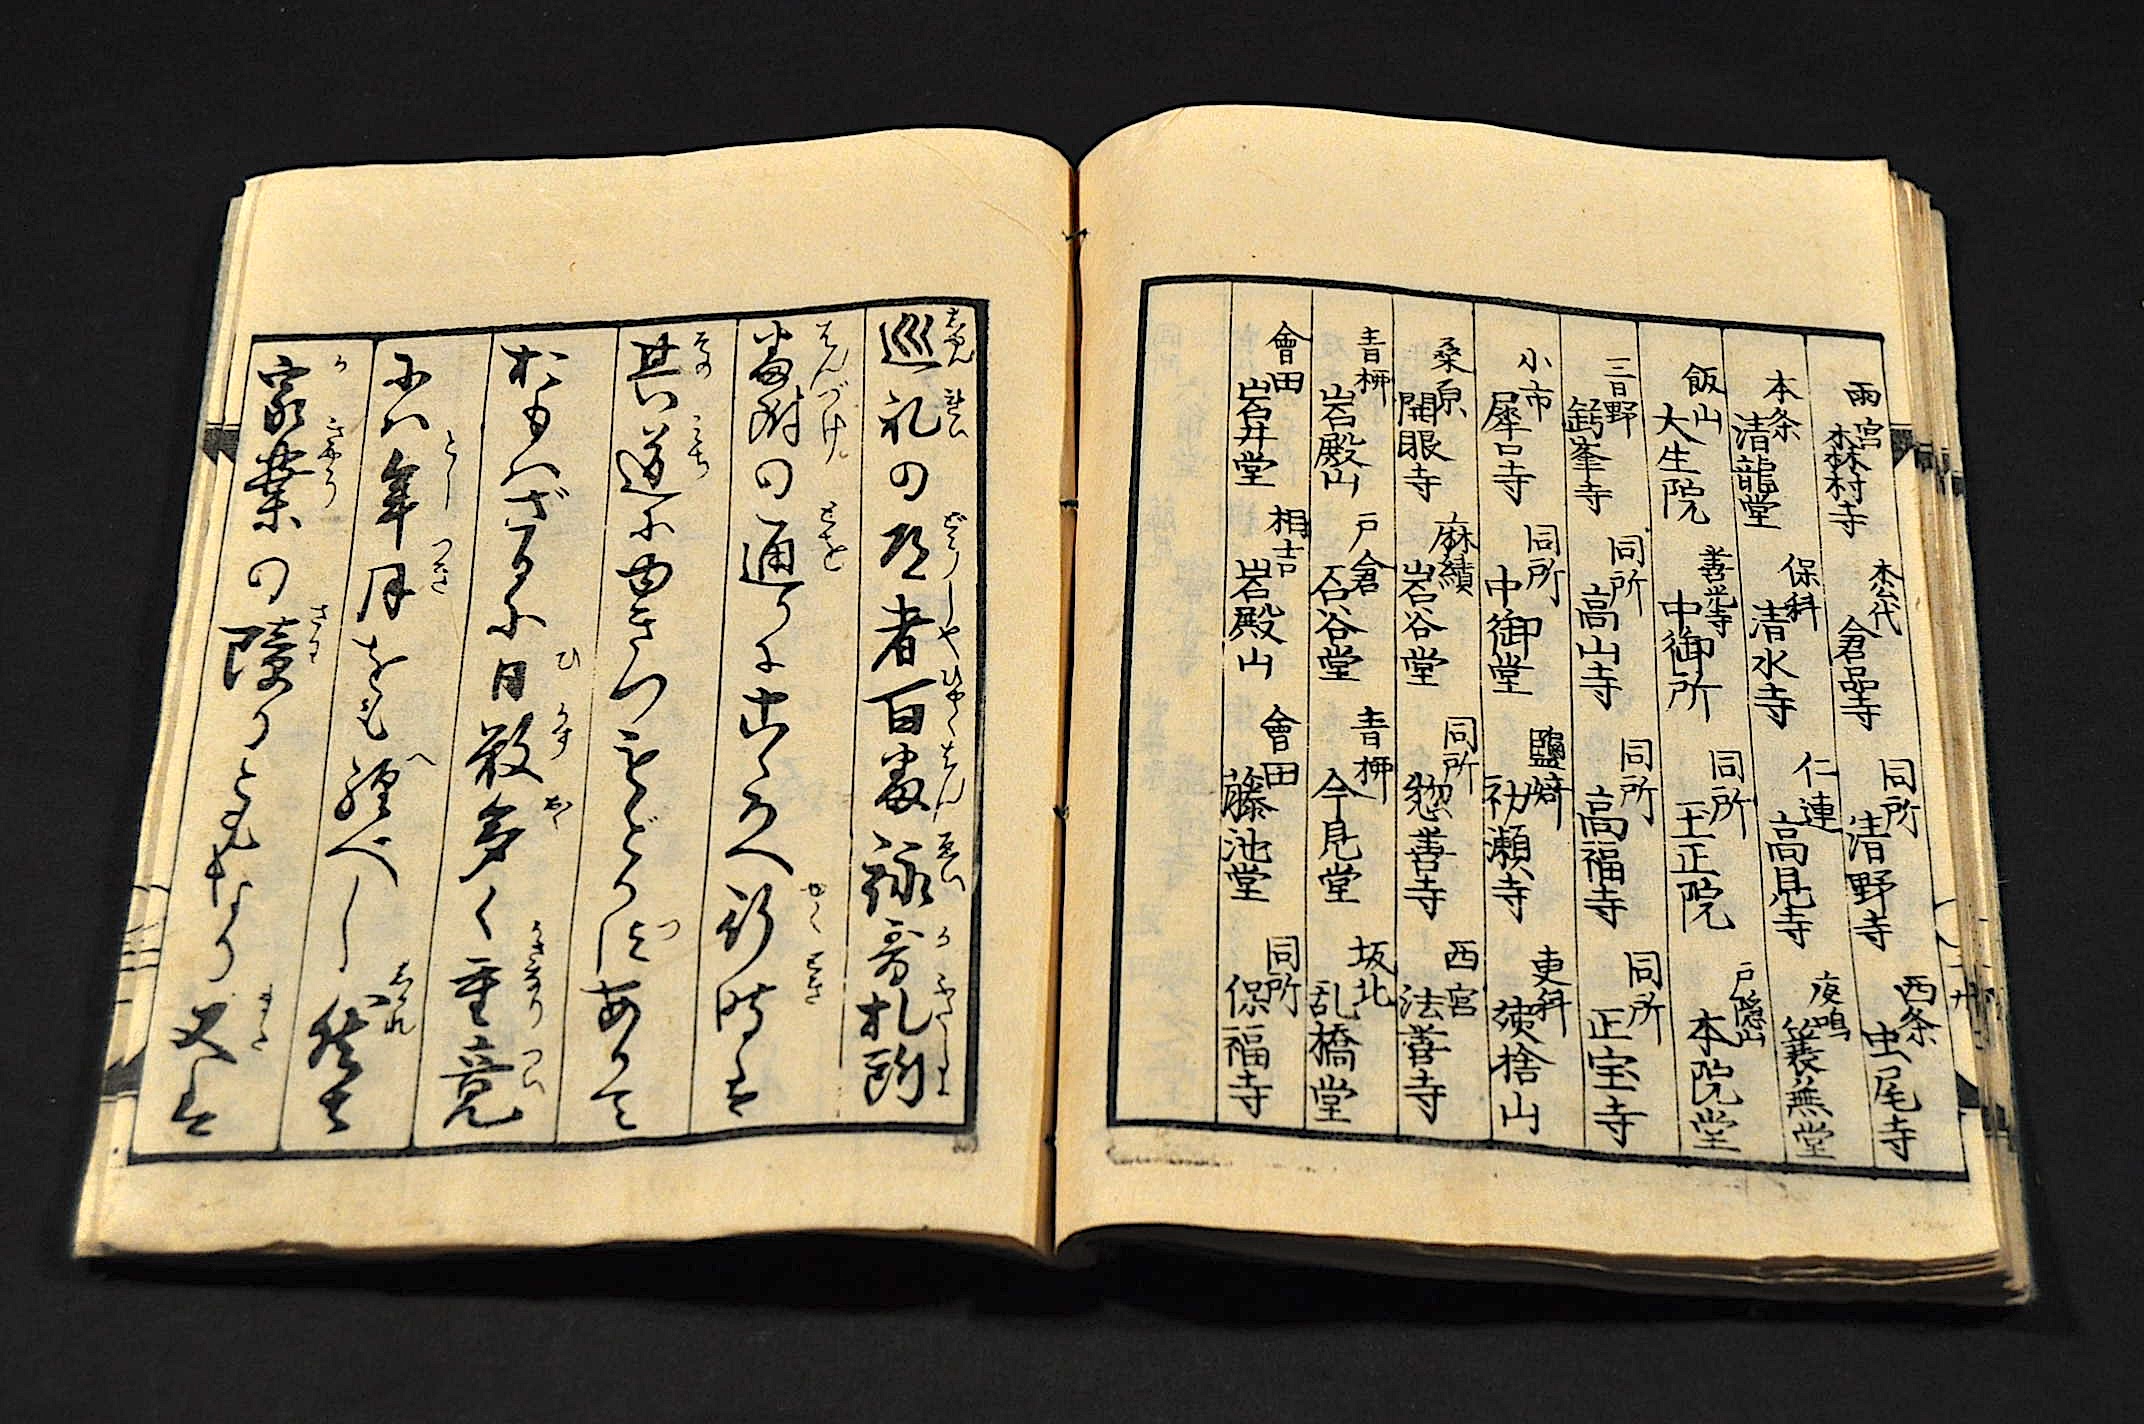 雨宮 本村寺 杢代 倉品寺 同所 清野寺 西条 虫尾寺
本条 清龍堂 保科 清水寺 仁連 高見寺 夜鳴 簑蕪堂
飯山 大生院 善光寺 中御所 同所 王正院 戸隠山 本院堂
三日野 峯寺 同所 高山寺 同所 高福寺 同所 正宝寺
小市 犀口寺 同所 中御堂 鹽﨑 初瀬寺 更科 捨山
桑原 開眼寺 麻績 岩谷堂 同所 惣善寺 西宮 法善寺
青柳 岩殿山 戸倉 石谷堂 青柳 今見堂 坂北 乱橋堂
會田 岩井堂 相吉 岩殿山 會田 藤池堂 同所 保福寺
巡礼の道者百番詠哥札所
番附の通りにこゝろへ行時は
其道にゆきつもどりつあつて
おもハざるに日数多く重竟
にハ年月をも經べし然は
家業の障りともなり又は